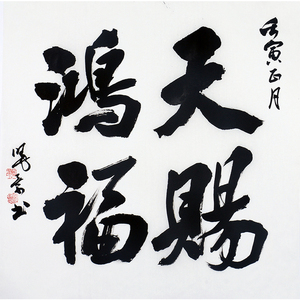 壬寅正月
天賜
鴻福
书